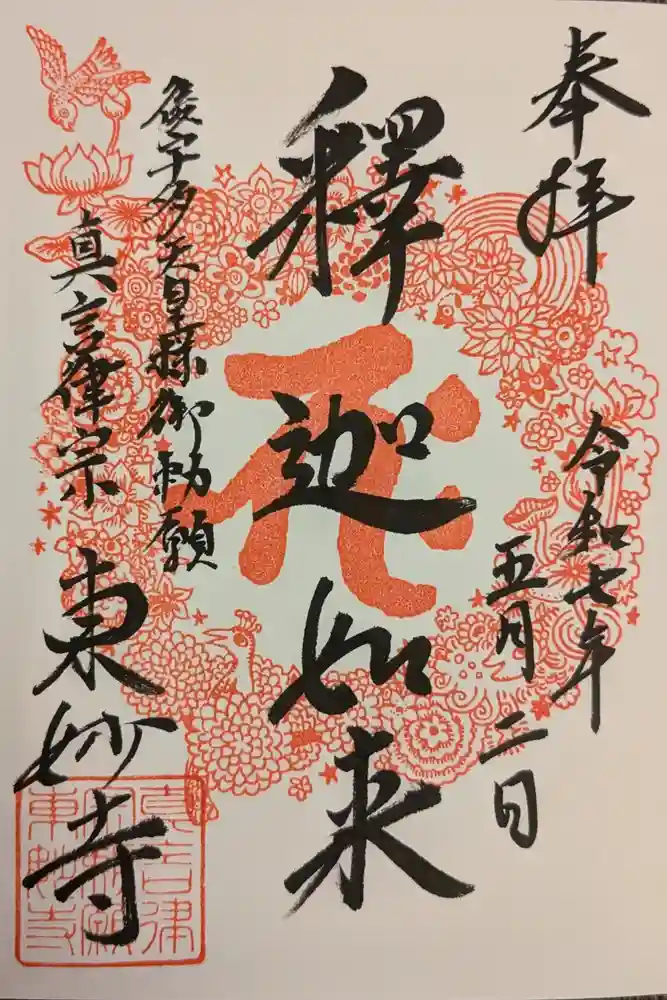 奉拝
令和七年
五月二日
釋迦如来
後宇多天皇様御勅願
真言律宗
東妙寺
真言律
宗勅願
東妙寺